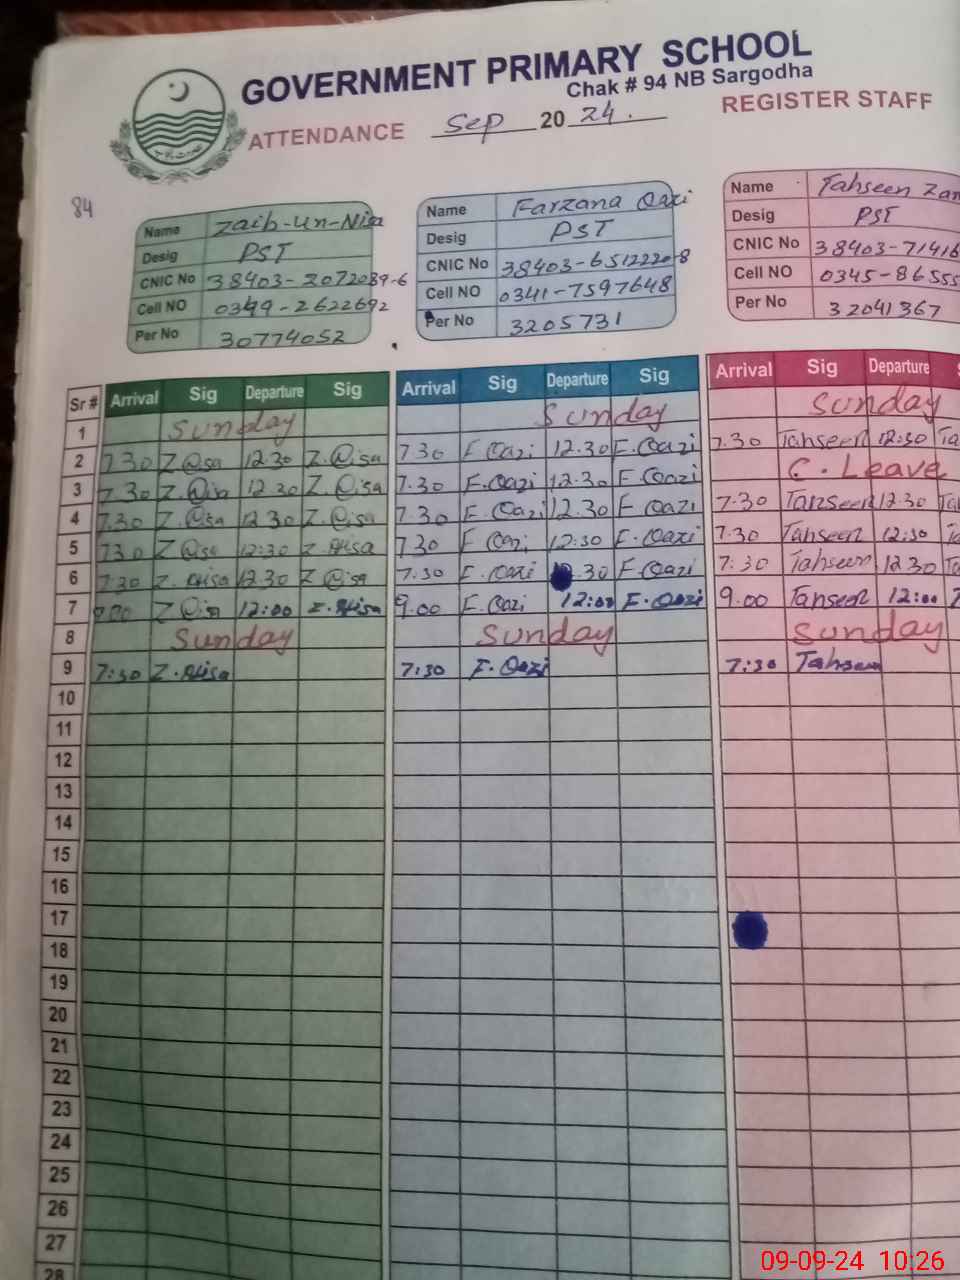 GOVERNMENT PRIMARY SCHOOL
Chak # 94 NB Sargodha
ATTENDANCE Sep 2024. REGISTER STAFF
84
Name Zaib-un-Nisa
Desig PST
CNIC No 38403-2072089-6
Cell NO 0349-2622692
Per No 30774052
Name Farzana Qazi
Desig PST
CNIC No 38403-6512220-8
Cell NO 0341-7597648
Per No 3205731
Name Tahseen Zam
Desig PST
CNIC No 38403-71416
Cell NO 0345-86555
Per No 32041367
Sr # Arrival Sig Departure Sig Arrival Sig Departure Sig Arrival Sig Departure S
1 Sunday Sunday Sunday
2 7.30 Z.Nisa 12.30 Z.Nisa 7.30 F.Qazi 12.30 F.Qazi 7.30 Tahseen 12:30 Ta
3 7.30 Z.Nisa 12.30 Z.Nisa 7.30 F.Qazi 12.30 F.Qazi C. Leave
4 7.30 Z.Nisa 12.30 Z.Nisa 7.30 F.Qazi 12.30 F.Qazi 7.30 Tahseen 12.30 Ta
5 7.30 Z.Nisa 12:30 Z.Nisa 7.30 F.Qazi 12:30 F.Qazi 7.30 Tahseen 12:30 Ta
6 7.30 Z.Nisa 12.30 Z.Nisa 7.30 F.Qazi .30 F.Qazi 7.30 Tahseen 12.30 Ta
7 9.00 Z.Nisa 12:00 Z.Nisa 9.00 F.Qazi 12:00 F.Qazi 9.00 Tahseen 12:00 T
8 Sunday Sunday Sunday
9 7:30 Z.Nisa 7:30 F.Qazi 7:30 Tahseen
10
11
12
13
14
15
16
17
18
19
20
21
22
23
24
25
26
27
28
09-09-24 10:26